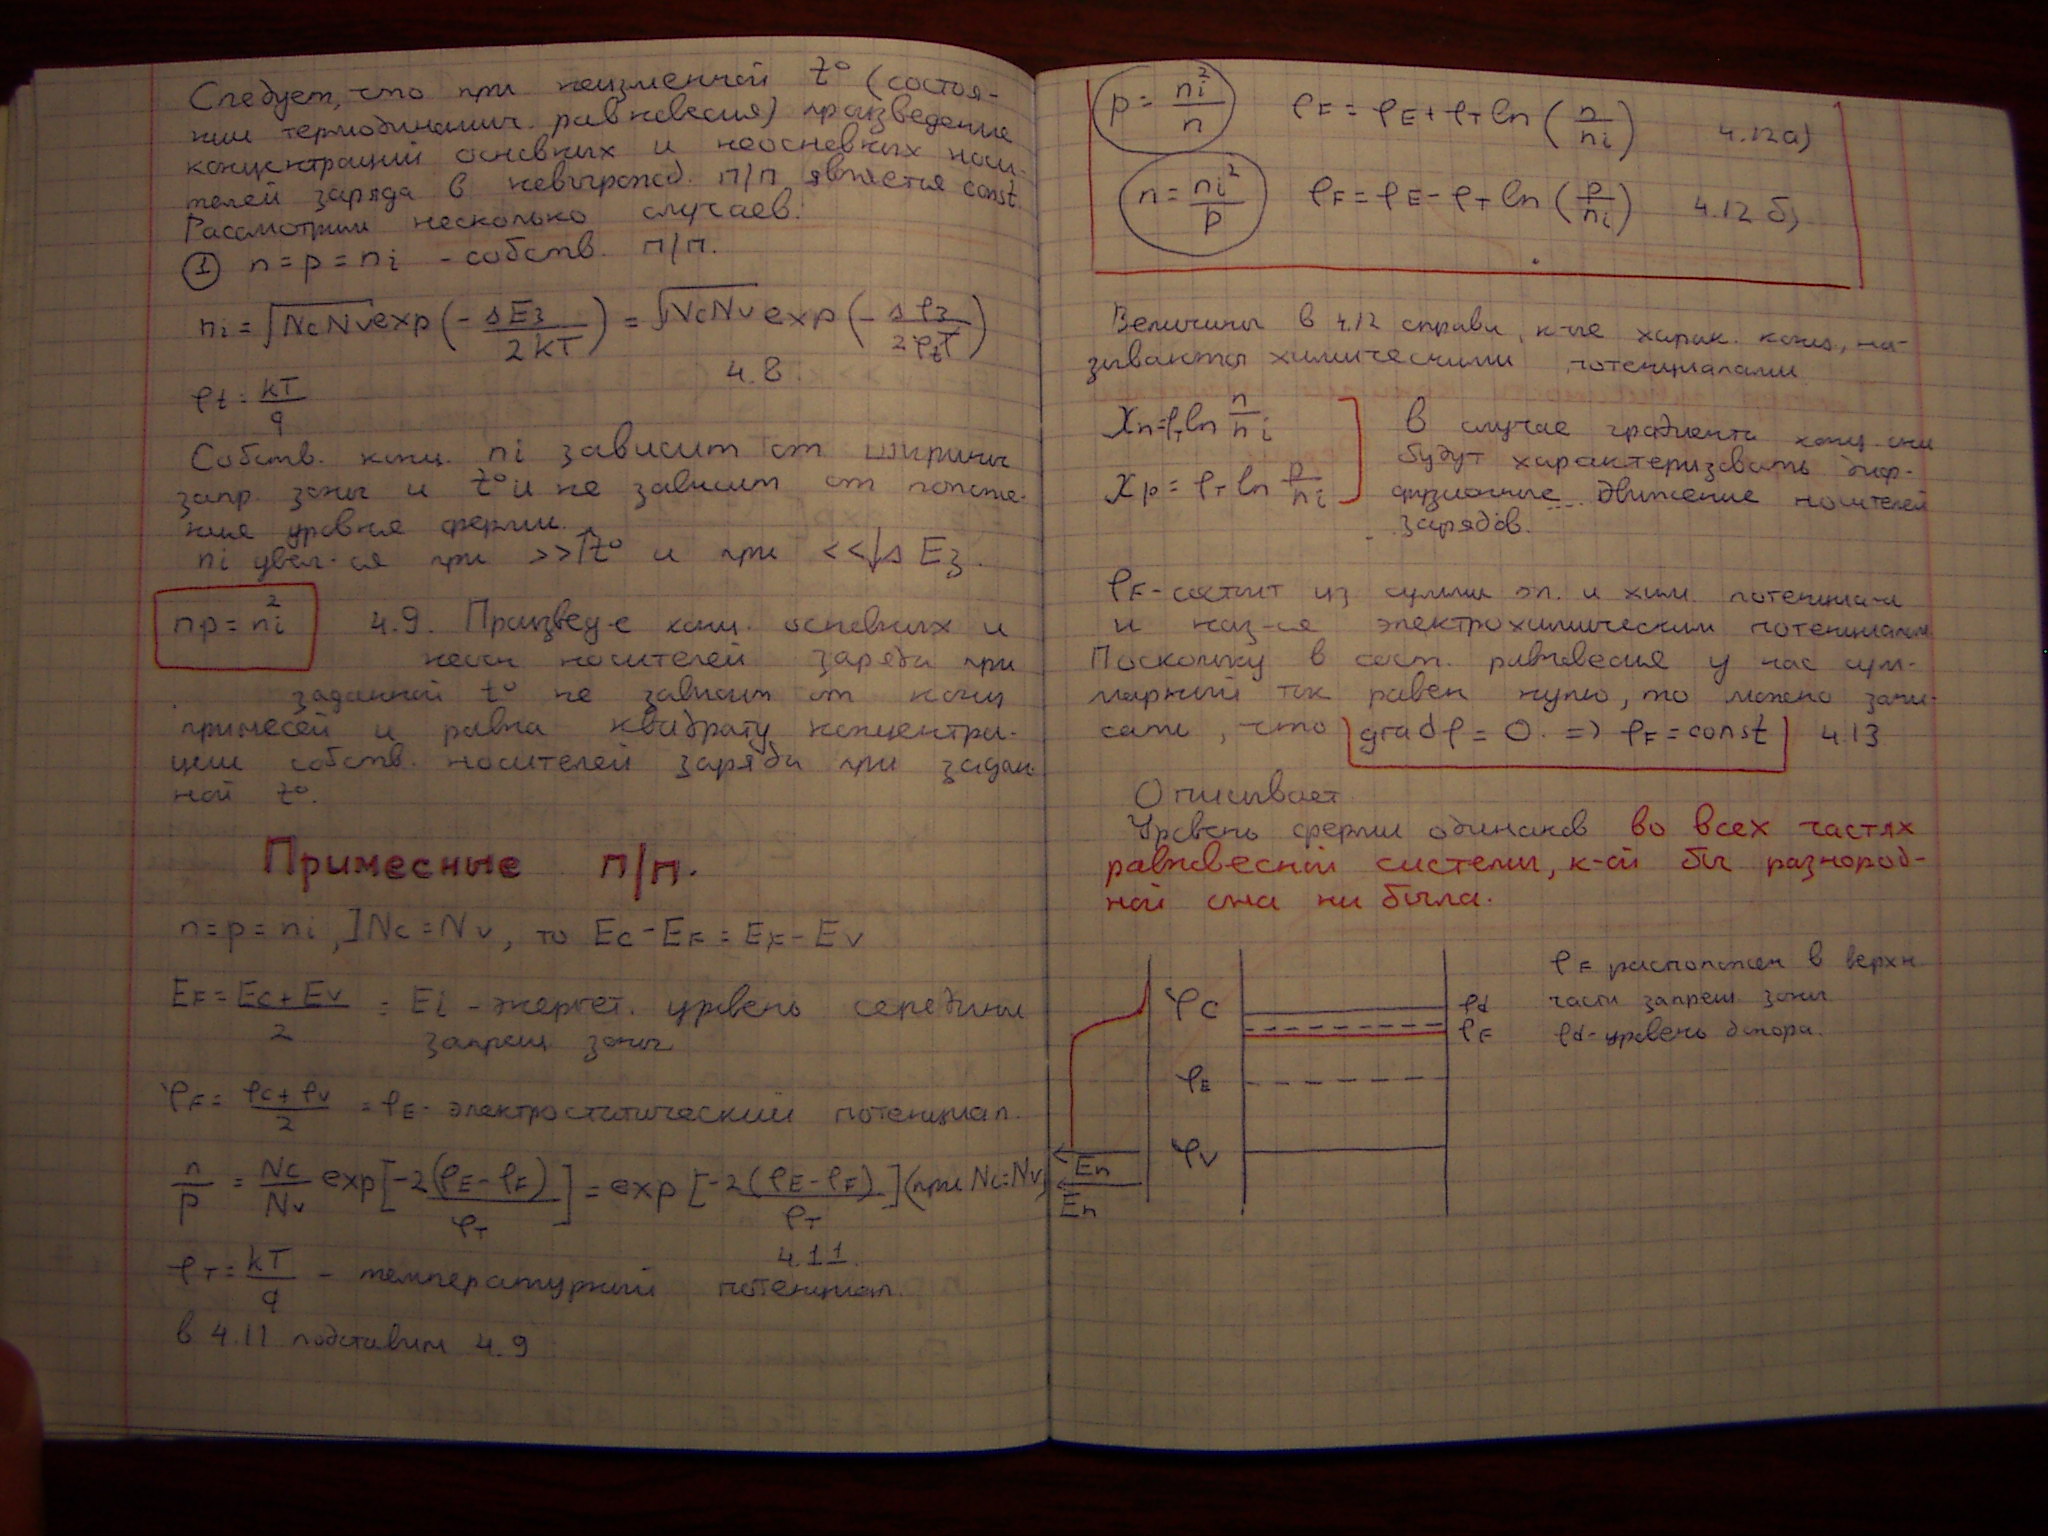 Следует, что при неизменной t° (состоя-
нии термодинамич. равновесия) произведение
концентраций основных и неосновных носи-
телей заряда в невырожд. п/п является const.
Рассмотрим несколько случаев.
① n = p = ni - собств. п/п.
ni = √NcNv exp(- ΔEз / 2kT) = √NcNv exp(- Δφз / 2φtT)
4.8.
φt = kT / q
Собств. конц. ni зависит от ширины
запр. зоны и t° и не зависит от положе-
ния уровня ферми.
ni увел-ся при >>↑t° и при <<↓ΔEз.
np = ni² 4.9. Произвед-е конц. основных и
неосн носителей заряда при
заданной t° не зависит от конц
примесей и равна квадрату концентра-
ции собств. носителей заряда при задан
ной t°.
Примесные п/п.
n = p = ni, ]Nc = Nv, то Ec - EF = EF - Ev
EF = Ec + Ev / 2 = Ei - энергет. уровень середины
запрещ зоны
φF = φc + φv / 2 = φE - электростатический потенциал.
n / p = Nc / Nv exp[-2(φE - φF) / φT] = exp[-2(φE - φF) / φT] (при Nc = Nv)
4.11.
φT = kT / q - температурный потенциал.
в 4.11 подставим 4.9
p = ni² / n φF = φE + φT ln(n / ni) 4.12а)
n = ni² / p φF = φE - φT ln(p / ni) 4.12 б)
Величины в 4.12 справа, к-ые харак. конц, на-
зываются химическими потенциалами
Xn = φT ln n / ni
Xp = φT ln p / ni
В случае градиента конц они
будут характеризовать диф-
фузионные движение носителей
зарядов.
φF - состоит из суммы эл. и хим. потенциала
и наз-ся электрохимическим потенциалом
Поскольку в сост. равновесия у нас сум-
марный ток равен нулю, то можно запи-
сать, что gradφ = 0. => φF = const 4.13
Описывает
Уровень ферми одинаков во всех частях
равновесной системы, к-ой бы разнород-
ной она ни была.
φF расположен в верхн.
части запрещ зоны
φd - уровень донора.
φc φd
φF
φE
φv
En
En